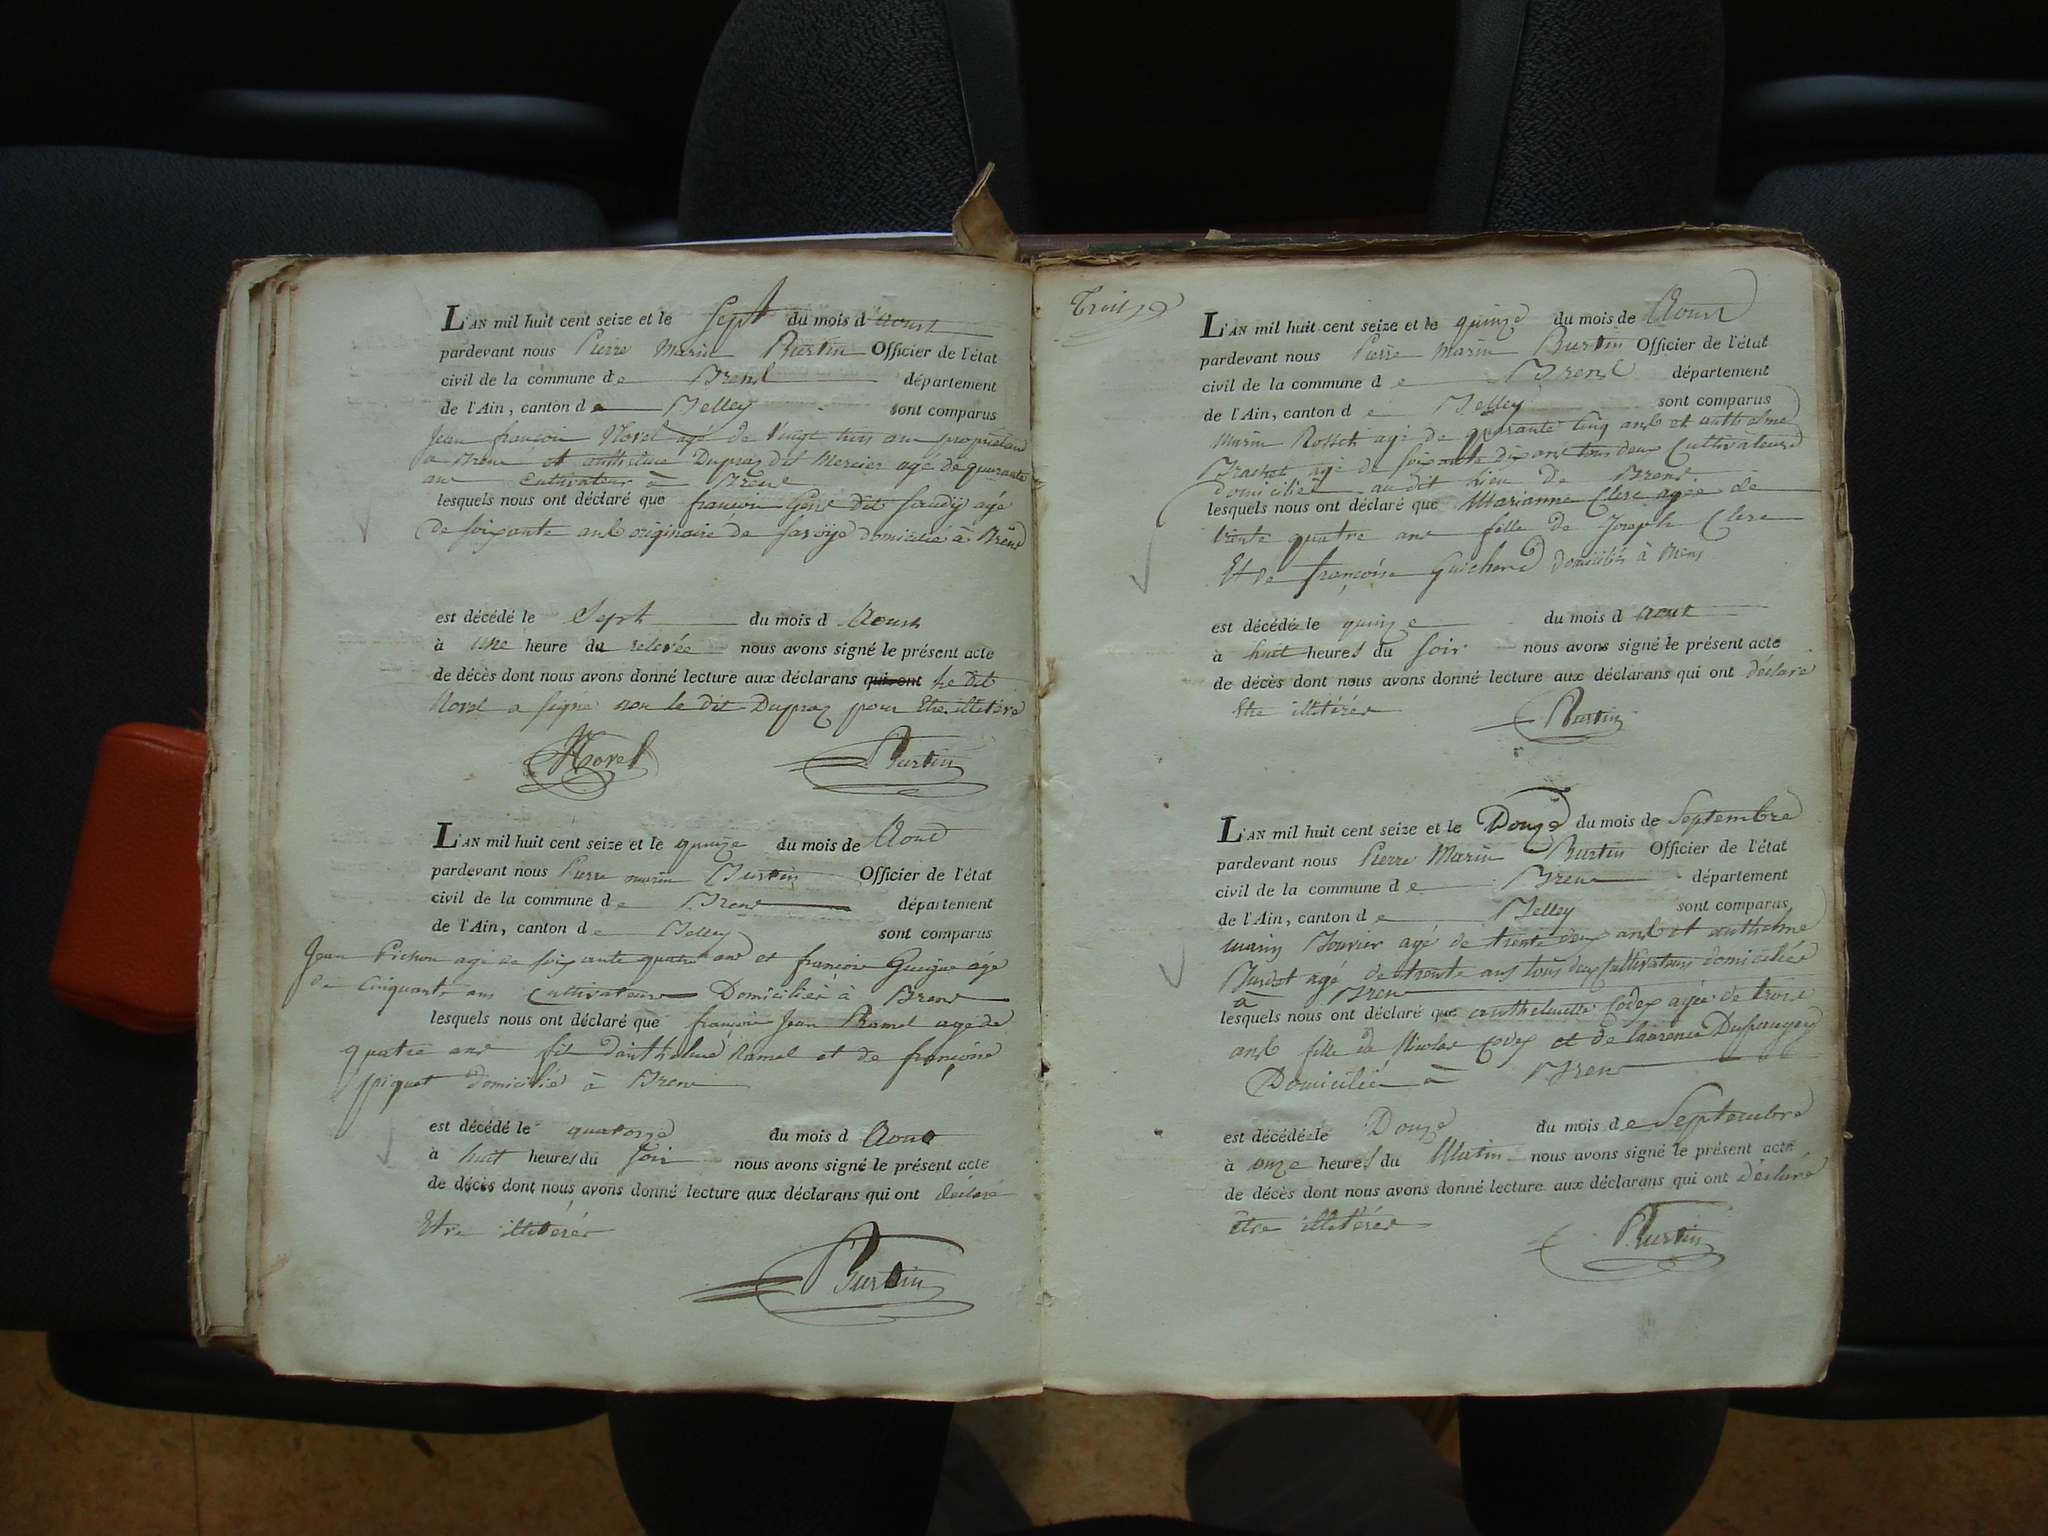 L'AN mil huit cent seize et le Sept du mois d'Aoust
pardevant nous Pierre Marin Burtin Officier de l'état
civil de la commune de Brens département
de l'Ain, canton de Belley sont comparus
Jean françois Morel agé de vingt trois ans propriétaire
a Brens et anthelme Dupraz dit Mercier agé de quarante
ans Cultivateur à Brens
lesquels nous ont déclaré que françois dit agé
de soixante ans originaire de savoÿe domicilié à Brens
est décédé le Sept du mois d Aoust
à une heure du relevée nous avons signé le présent acte
de décès dont nous avons donné lecture aux déclarans qui ont le dit
Morel a signé non le dit Dupraz pour Etre illetéré
Morel Burtin
L'AN mil huit cent seize et le quinze du mois de Aout
pardevant nous Pierre marin Burtin Officier de l'état
civil de la commune de Brens département
de l'Ain, canton de Belley sont comparus
Jean Pichon agé de soixante quatre ans et françois Guigue agé
de Cinquante ans Cultivateurs Domiciliés à Brens
lesquels nous ont déclaré que françois Jean Ramel agé de
quatre ans fils d'anthelme Ramel et de françoise
piquet domicilié à Brens
est décédé le quatorze du mois d Aout
à huit heures du soir nous avons signé le présent acte
de décès dont nous avons donné lecture aux déclarans qui ont déclaré
Etre illetérés
Burtin
Trois
L'AN mil huit cent seize et le quinze du mois de Aoust
pardevant nous Pierre Marin Burtin Officier de l'état
civil de la commune de Brens département
de l'Ain, canton de Belley sont comparus
Marin Rosset agé de quarante cinq ans et anthelme
Brachet agé de soixante dix ans tous deux Cultivateurs
domiciliés au dit lieu de Brens
lesquels nous ont déclaré que Marianne Clerc agée de
trente quatre ans fille de Joseph Clerc
Et de françoise Guicherd domiciliés à Brens
est décédé le quinze du mois d Aoust
à huit heures du soir nous avons signé le présent acte
de décès dont nous avons donné lecture aux déclarans qui ont déclaré
Etre illitérés
Burtin
L'AN mil huit cent seize et le Douze du mois de Septembre
pardevant nous Pierre Marin Burtin Officier de l'état
civil de la commune de Brens département
de l'Ain, canton de Belley sont comparus
marin Bouvier agé de trente deux ans et anthelme
agé de trente ans tous deux Cultivateurs domiciliés
à Brens
lesquels nous ont déclaré que anthelmette Codex agée de trois
ans fille de Nicolas Codex et de laurence
Domiciliée à Brens
est décédé le Douze du mois de Septembre
à onze heures du Matin nous avons signé le présent acte
de décès dont nous avons donné lecture aux déclarans qui ont déclaré
être illetérés
Burtin